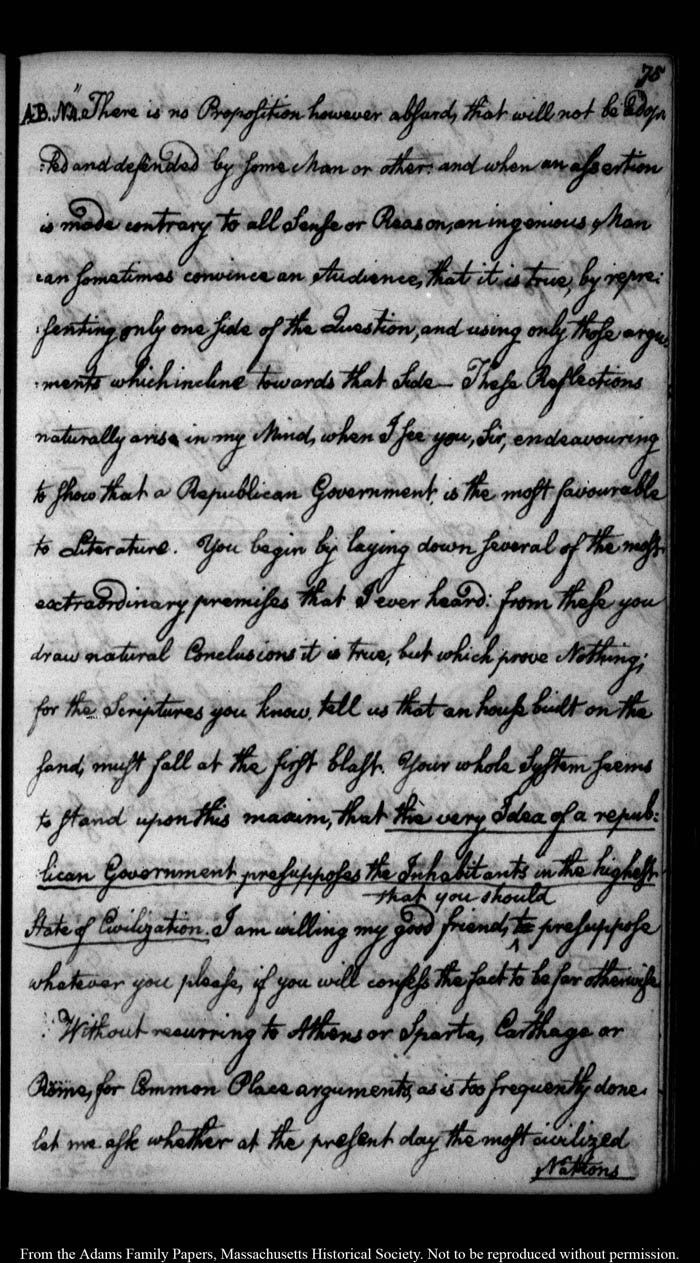 75
A.B. No. 1. "There is no Proposition however absurd, that will not be adop-
:ted and defended by some Man or other: and when an assertion
is made contrary to all Sense or Reason, an ingenious Man
can sometimes convince an Audience, that it is true, by repre:
:senting only one side of the Question, and using only those argu
:ments which incline towards that Side— These Reflections
naturally arise in my Mind, when I see you, Sir, endeavouring
to show that a Republican Government, is the most favourable
to Literature. You begin by laying down several of the most
extraordinary premises that I ever heard: from these you
draw natural Conclusions it is true, but which prove Nothing;
for the Scriptures you know, tell us that an house built on the
sand, must fall at the first blast. Your whole System seems
to stand upon this maxim, that the very Idea of a repub:
lican Government presupposes the Inhabitants in the highest
that you should
State of Civilization. I am willing my good friend, to presuppose
whatever you please, if you will confess the fact to be far otherwise
Without recurring to Athens or Sparta, Carthage or
Rome, for Common Place arguments, as is too frequently done.
let me ask whether at the present day the most civilized
Nations
From the Adams Family Papers, Massachusetts Historical Society. Not to be reproduced without permission.